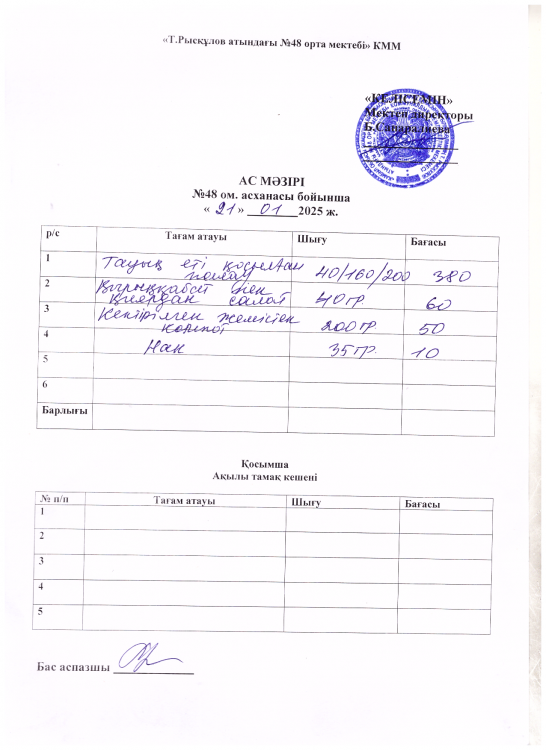 «Т.Рысқұлов атындағы №48 орта мектебі» КММ
«КЕЛІСЕМІН»
Мектеп директоры
Б.Сапаралиева
АС МӘЗІРІ
№48 ом. асханасы бойынша
« 21 » 01 2025 ж.
р/с Тағам атауы Шығу Бағасы
1 Тауық еті қосылған
палау 40/160/200 380
2 Қырыққабат пен
қиярдан салат 40 гр 60
3 Кептірілген жемістен
компот 200 гр 50
4 Нан 35 гр. 10
5
6
Барлығы
Қосымша
Ақылы тамақ кешені
№ п/п Тағам атауы Шығу Бағасы
1
2
3
4
5
Бас аспазшы